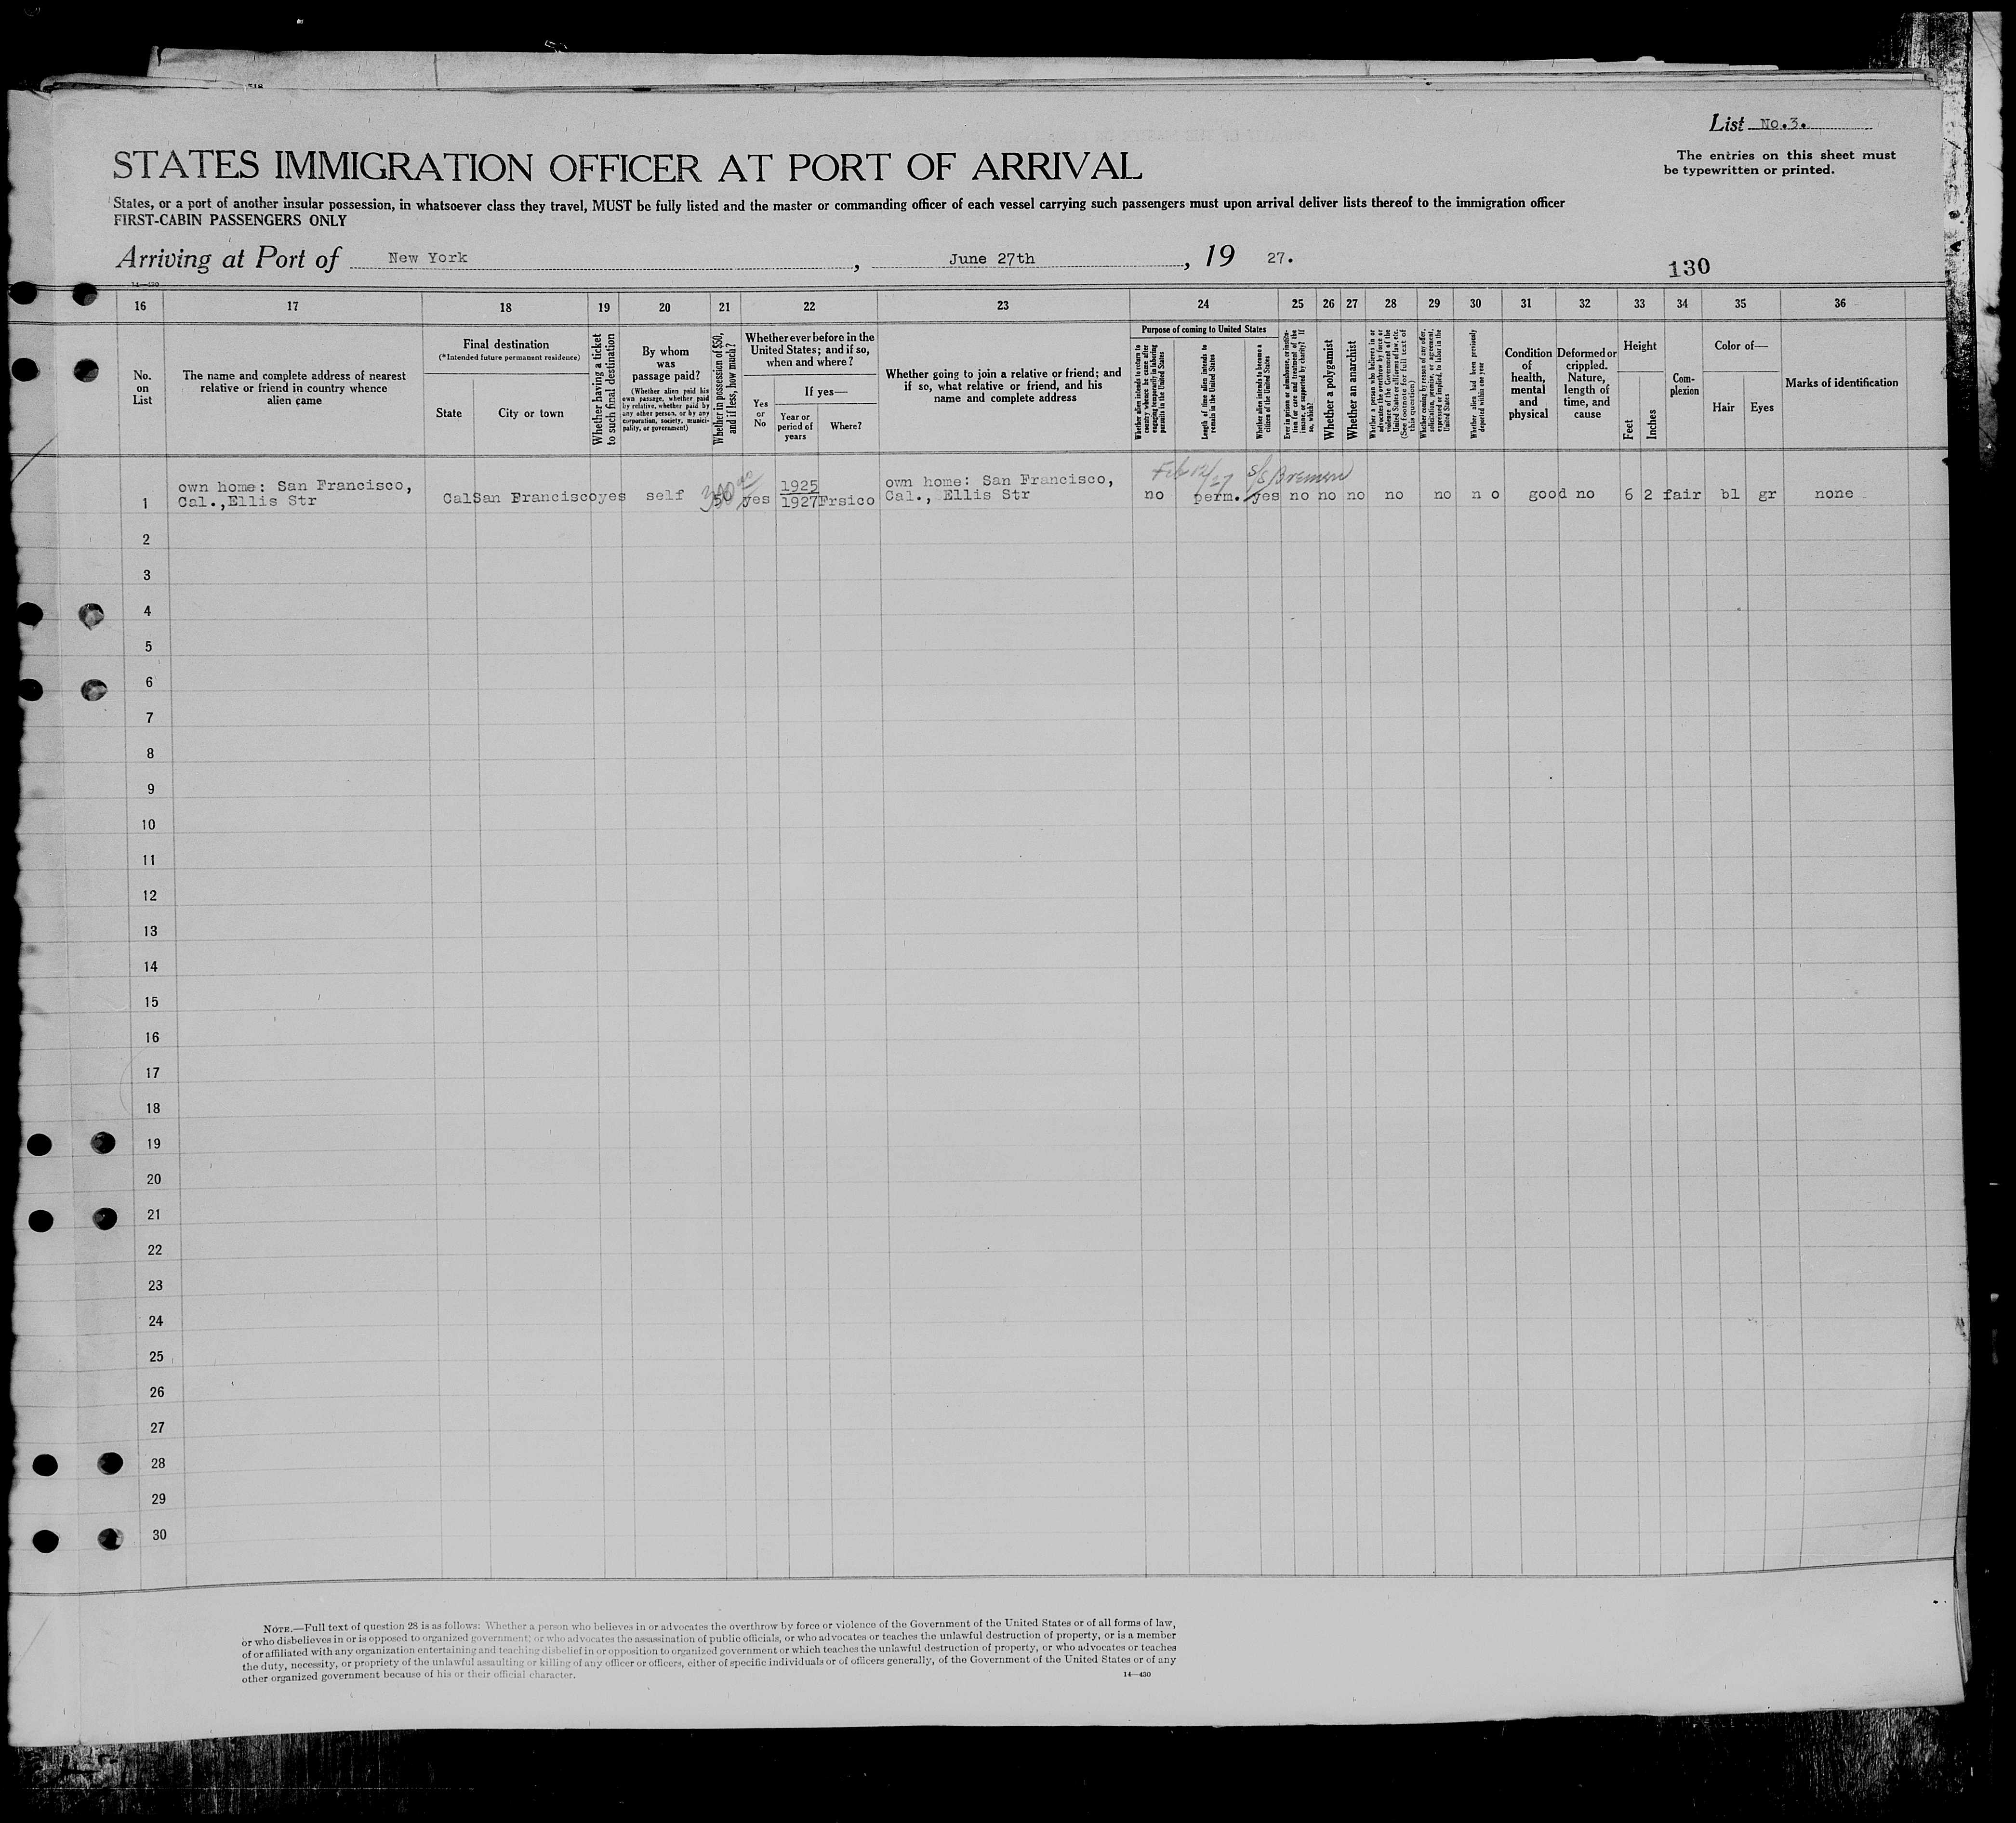 List No.3.
STATES IMMIGRATION OFFICER AT PORT OF ARRIVAL
The entries on this sheet must
be typewritten or printed.
States, or a port of another insular possession, in whatsoever class they travel, MUST be fully listed and the master or commanding officer of each vessel carrying such passengers must upon arrival deliver lists thereof to the immigration officer
FIRST-CABIN PASSENGERS ONLY
Arriving at Port of New York, June 27th, 19 27.
130
14—430
16 17 18 19 20 21 22 23 24 25 26 27 28 29 30 31 32 33 34 35 36
No.
on
List
The name and complete address of nearest
relative or friend in country whence
alien came
Final destination
(*Intended future permanent residence)
State
City or town
Whether having a ticket
to such final destination
By whom
was
passage paid?
(Whether alien paid his
own passage, whether paid
by relative, whether paid by
any other person, or by any
corporation, society, munici-
pality, or government)
Whether in possession of $50,
and if less, how much?
Whether ever before in the
United States; and if so,
when and where?
Yes
or
No
If yes—
Year or
period of
years
Where?
Whether going to join a relative or friend; and
if so, what relative or friend, and his
name and complete address
Purpose of coming to United States
Whether alien intends to return to
country whence he came after
engaging temporarily in laboring
pursuits in the United States
Length of time alien intends to
remain in the United States
Whether alien intends to become a
citizen of the United States
Ever in prison or almshouse, or institu-
tion for care and treatment of the
insane, or supported by charity? If
so, which?
Whether a polygamist
Whether an anarchist
Whether a person who believes in or
advocates the overthrow by force or
violence of the Government of the
United States or all forms of law, etc.
(See footnote for full text of
this question)
Whether coming by reason of any offer,
solicitation, promise, or agreement,
expressed or implied, to labor in the
United States
Whether alien had been previously
deported within one year
Condition
of
health,
mental
and
physical
Deformed or
crippled.
Nature,
length of
time, and
cause
Height
Feet
Inches
Com-
plexion
Color of—
Hair
Eyes
Marks of identification
Feb 12/27 S/S Bremen
own home: San Francisco, 1925 own home: San Francisco,
1 Cal.,Ellis Str Cal San Francisco yes self yes 1927 Frsico Cal., Ellis Str no perm. yes no no no no no n o good no 6 2 fair bl gr none
2
3
4
5
6
7
8
9
10
11
12
13
14
15
16
17
18
19
20
21
22
23
24
25
26
27
28
29
30
NOTE.—Full text of question 28 is as follows: Whether a person who believes in or advocates the overthrow by force or violence of the Government of the United States or of all forms of law,
or who disbelieves in or is opposed to organized government; or who advocates the assassination of public officials, or who advocates or teaches the unlawful destruction of property, or is a member
of or affiliated with any organization entertaining and teaching disbelief in or opposition to organized government or which teaches the unlawful destruction of property, or who advocates or teaches
the duty, necessity, or propriety of the unlawful assaulting or killing of any officer or officers, either of specific individuals or of officers generally, of the Government of the United States or of any
other organized government because of his or their official character.
14—430